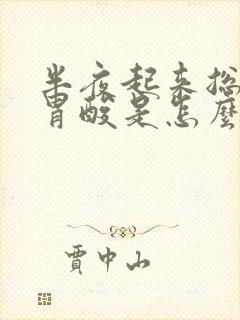 半夜起来捴
胃酸是怎麽
贾中山